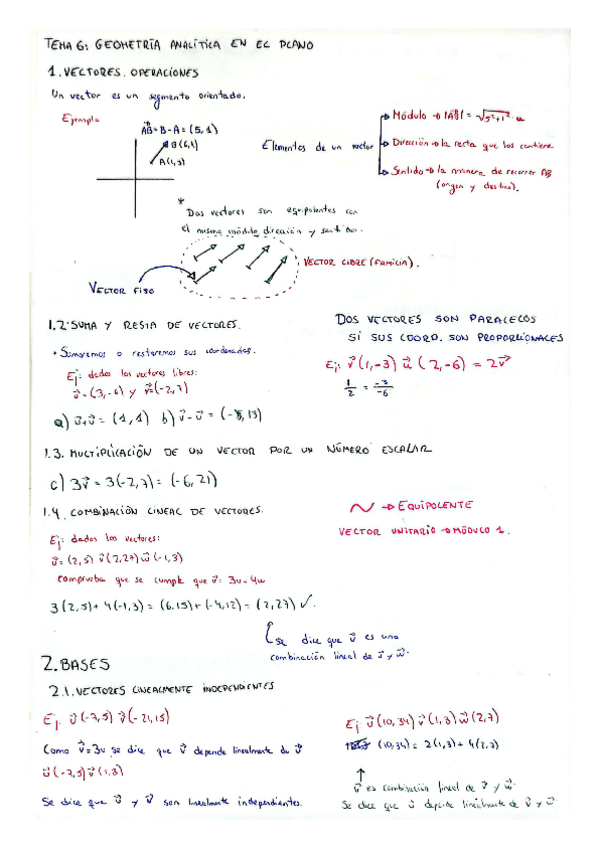 TEMA 6: GEOMETRÍA ANALÍTICA EN EL PLANO
1. VECTORES. OPERACIONES
Un vector es un segmento orientado.
Ejemplo
AB = B - A = (5, 1)
B(6,4)
A(1,3)
Elementos de un vector
Módulo → |AB| =
Dirección → la recta que los contiene
Sentido → la manera de recorrer AB
(origen y destino).
* Dos vectores son equipolentes con
el mismo módulo, dirección y sentido.
VECTOR LIBRE (FAMILIA).
VECTOR FIJO
1.2 SUMA Y RESTA DE VECTORES.
• Sumaremos o restaremos sus coordenadas.
Ej: dados los vectores libres:
u⃗ = (3,-6) y v⃗ = (-2,7)
a) u⃗+v⃗ = (1,1) b) v⃗-u⃗ = (-5,13)
DOS VECTORES SON PARALELOS
SI SUS COORD. SON PROPORCIONALES
Ej: v⃗(1,-3) u⃗(2,-6) = 2v⃗
1/2 = -3/-6
1.3. MULTIPLICACIÓN DE UN VECTOR POR UN NÚMERO ESCALAR
c) 3v⃗ = 3(-2,7) = (-6,21)
1.4. COMBINACIÓN LINEAL DE VECTORES.
Ej: dados los vectores:
u⃗ = (2,5) v⃗(2,27) w⃗(-1,3)
comprueba que se cumple que v⃗ = 3u - 4w
3(2,5) + 4(-1,3) = (6,15) + (-4,12) = (2,27) ✓.
~ → EQUIPOLENTE
VECTOR UNITARIO → MÓDULO 1.
se dice que v⃗ es una
combinación lineal de u⃗ y w⃗.
2. BASES
2.1. VECTORES LINEALMENTE INDEPENDIENTES
Ej. u⃗(-7,5) v⃗(-21,15)
Como v⃗=3u se dice que v⃗ depende linealmente de u⃗
u⃗(-7,5) v⃗(1,8)
Se dice que u⃗ y v⃗ son linealmente independientes.
Ej: u⃗(10,34) v⃗(1,3) w⃗(2,7)
(10,34) = 2(1,3) + 4(2,7)
u⃗ es combinación lineal de v⃗ y w⃗.
Se dice que u⃗ depende linealmente de v⃗ y w⃗